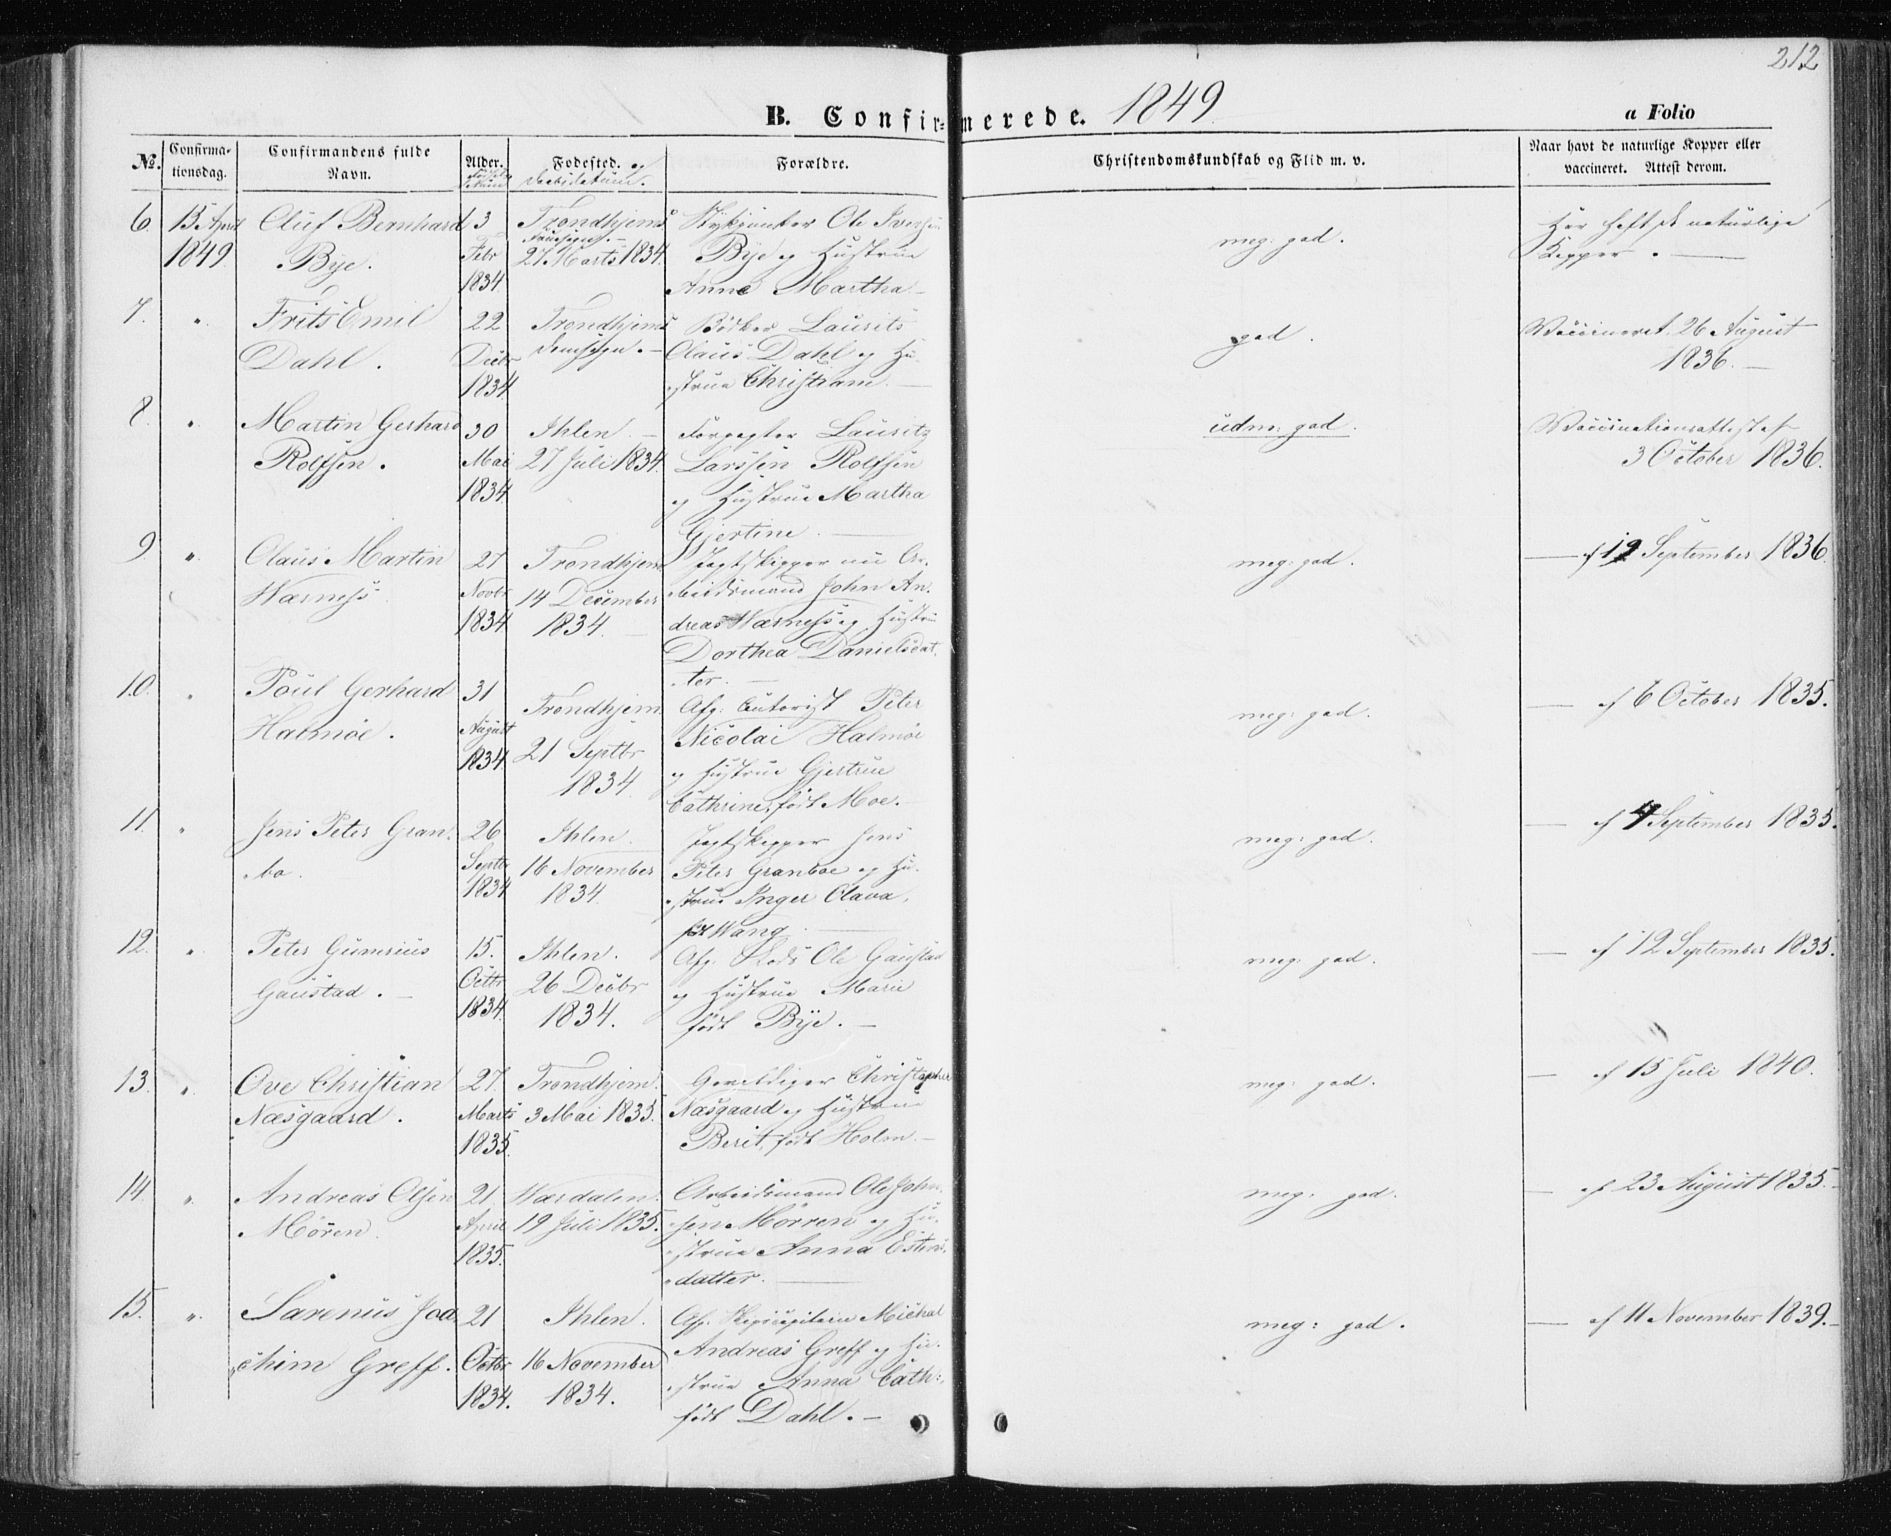 212
B. Confirmerede. 1849
a Folio
No.
Confirmationsdag.
Confirmandens fulde Navn.
Alder.
Fødested. og Daabsdatum.
Forældre.
Christendomskundskab og Flid m. v.
Naar havt de naturlige Kopper eller vaccineret. Attest derom.
6. 15 April 1849
Oluf Bernhard
Bye.
3 Febr 1834
Trondhjems
27 Marts 1834.
Ole Iversen
Bye og Hustrue
Anne Martha
meg: god.
Har haft de naturlige
Kopper.
7. "
Frits Emil
Dahl.
22 Decbr 1834
Trondhjems
Domsogn.
Bødker Lausits
Claus Dahl og Hu-
strue Christiane.
god.
Vaccineret 26 August
1836.
8. "
Martin Gerhard
Rolfsen.
30 Mai 1834
Ihlen.
27 Juli 1834.
Forpagter Lausitz
Larssen Rolfsen
og Hustrue Martha
Gjertine.
udm: god.
Vaccinationsattest af
3 October 1836.
9 "
Claus Martin
Wærness
27 Novbr 1834
Trondhjem
14 December
1834.
Jagtskipper nu Ar-
beidsmand John An-
dreas Wærness og Hustru
Dorthea Danielsdat-
ter.
meg: god.
— af 19 September 1836
10. "
Poul Gerhard
Halmøe.
31 August 1834.
Trondhjem.
21 Septbr
1834.
Afg: Peter
Nicolai Halmöe
og Hustrue Gjertrue
Cathrine, født Moe.
meg: god.
— af 6 October 1835.
11. "
Jens Peter Gran-
bo.
26 Septbr 1834
Ihlen.
16 November
1834
Jagtskipper Jens
Peter Granboe og Hu-
strue Inger Olava,
født Wang.
meg: god.
— af 4 September 1835.
12. "
Peter Gunerius
Gaustad.
15. Octbr 1834.
Ihlen.
26 Decbr
1834.
Afg. Ole Gaustad
og Hustrue Marie
født Bye.
meg: god.
— af 12 September 1835.
13. "
Ove Christian
Næsgaard.
27. Marts 1835.
Trondhjem.
3 Mai 1835.
Gevaldiger Christopher
Næsgaard og Hustrue
Berit, født Holm.
meg: god.
— af 15 Juli 1840.
14. "
Andreas Olsen
Mören.
21 April 1835.
Værdalen.
19 Juli 1835.
Arbeidsmand Ole John-
sen Mörren og Hu-
strue Anna Estens-
datter.
meg: god.
— af 23 August 1835.
15. "
Sarenius Joa-
chim Greff.
21 Octbr 1834.
Ihlen.
16 November
1834.
Afg. Skipscapitain Michal
Andreas Greff og Hu-
strue Anna Cath:,
født Dahl.
meg: god.
— af 11 November 1839.